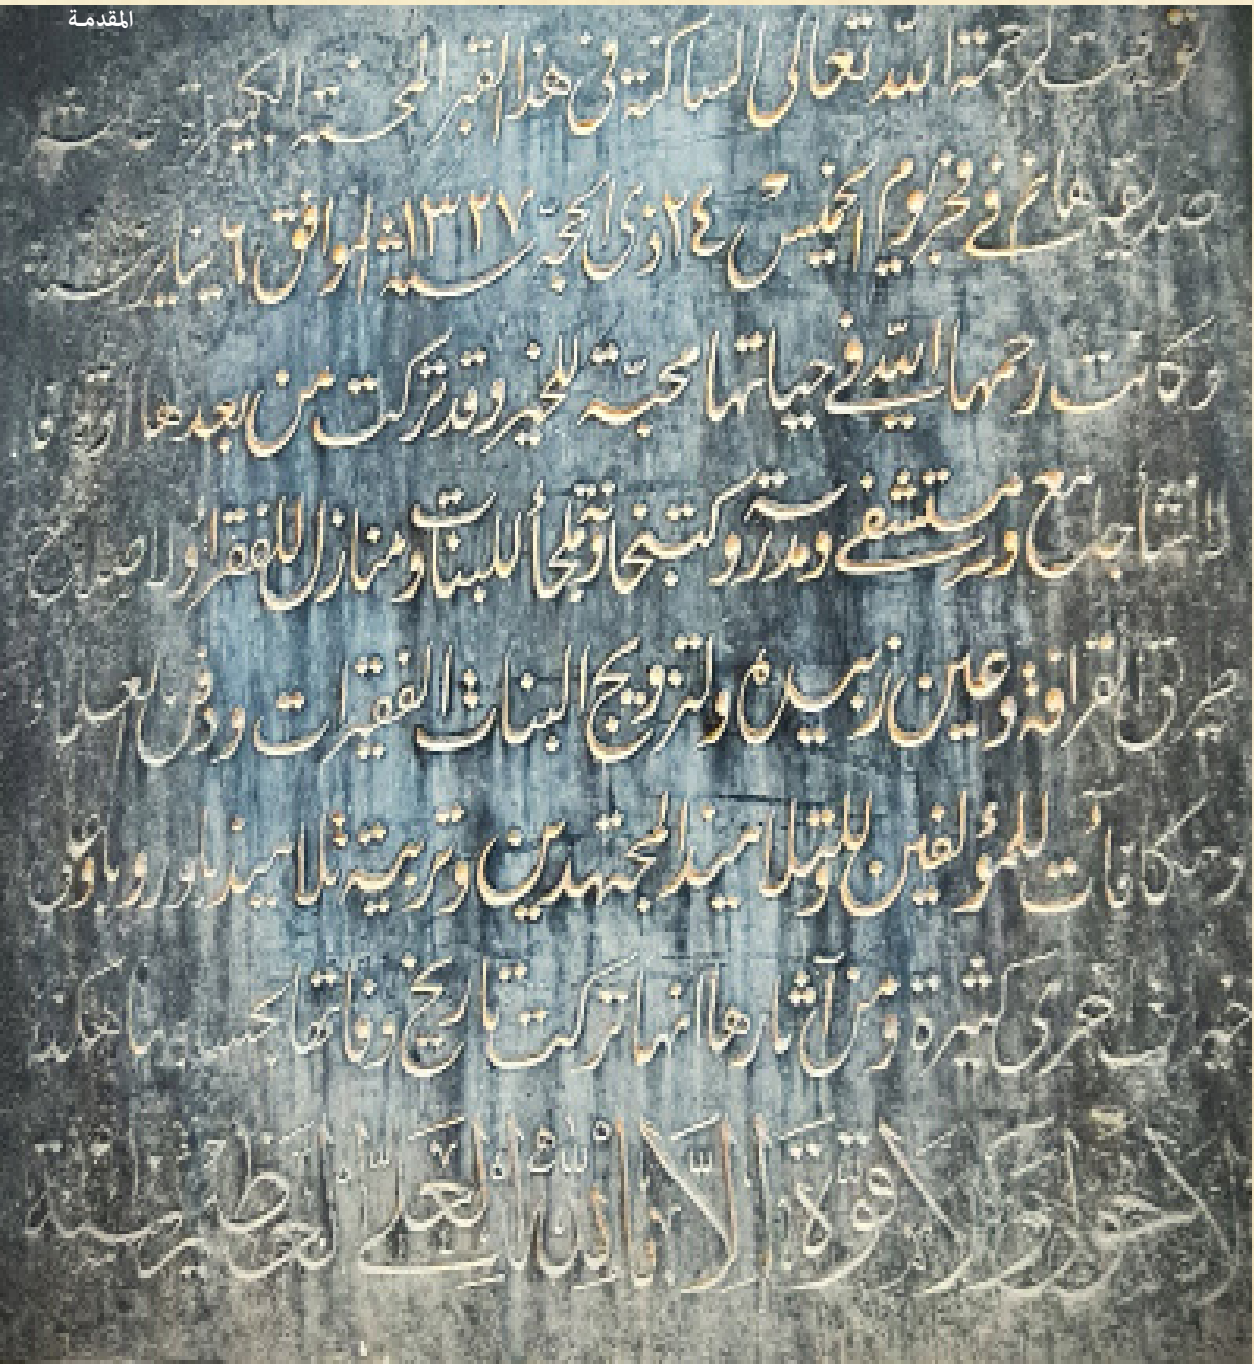 المقدمة
توفيت لرحمة الله تعالى الساكنة فى هذا القبر المحسنة الكبيرة
صديقه هانم في فجر يوم الخميس ٢٤ ذى الحجة سنة ١٣٢٧ الموافق ٦ يناير سنة
وكانت رحمها الله في حياتها محبة للخير وقد تركت من بعدها اوقافا
لانشا جامع ومستشفى ومدرسة وكتبخانة وملجأ للبنات ومنازل للفقرا ولاصلاح
طرق القرافة وعين زبيده ولتزويج البنات الفقيرات ودفن العلماء
ومكافآت للمؤلفين وللتلاميذ المجتهدين وتربية تلاميذ باوروبا وعلى
خيرات اخرى كثيرة ومن آثارها انها تركت تاريخ وفاتها بحسابها هكذا
لا حول ولا قوة إلا بالله العلي العظيم سنة